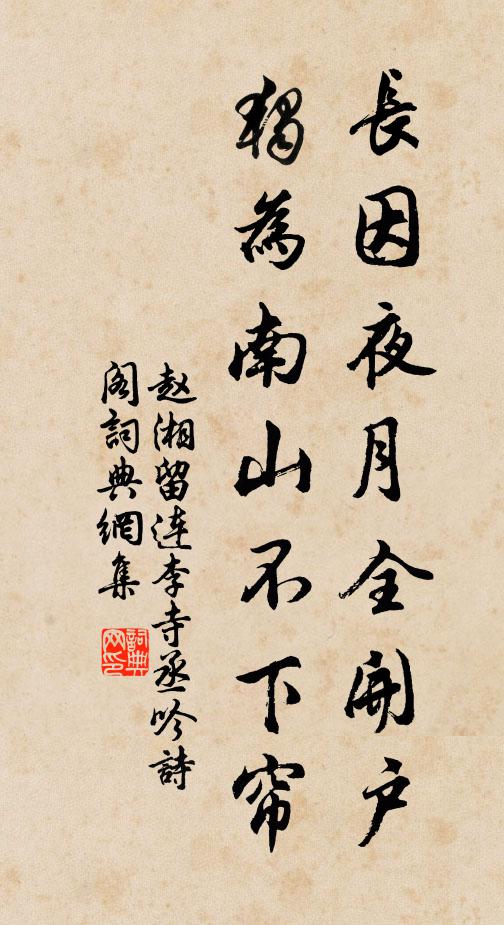 長因夜月全開户
獨為南山不下帘
赵湘留连李寺丞吟詩
阁詞典網集
詞典网印